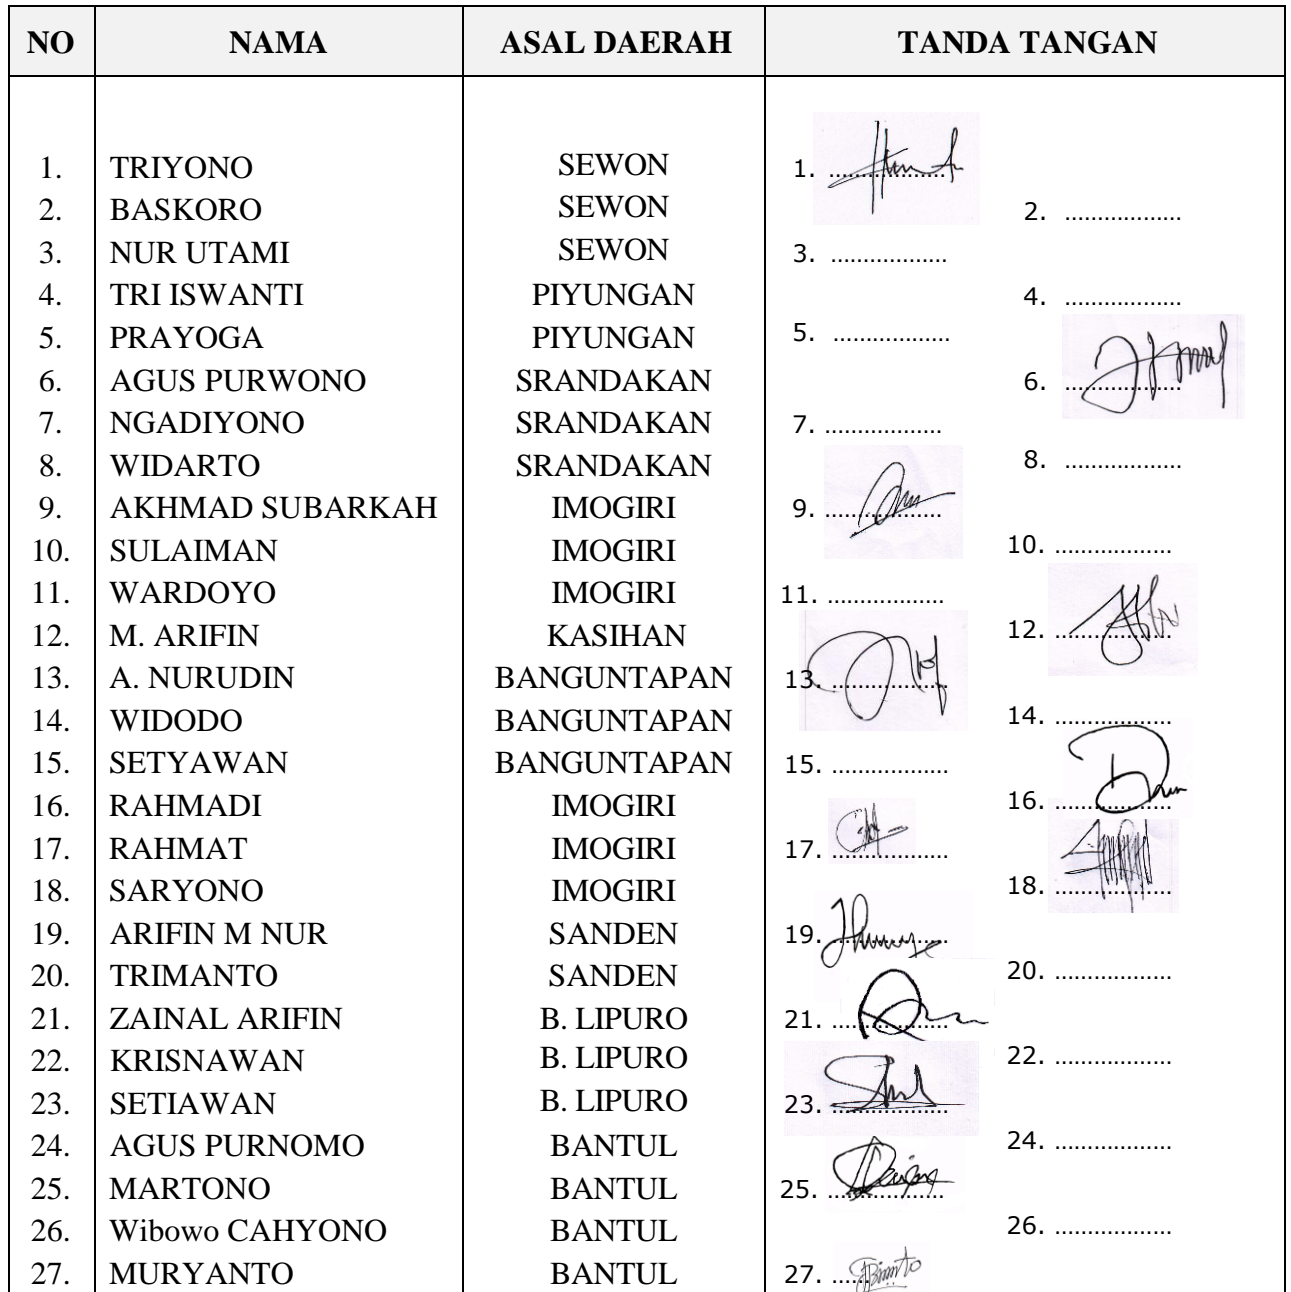 NO NAMA ASAL DAERAH TANDA TANGAN
1. TRIYONO SEWON 1. ..................
2. BASKORO SEWON 2. ..................
3. NUR UTAMI SEWON 3. ..................
4. TRI ISWANTI PIYUNGAN 4. ..................
5. PRAYOGA PIYUNGAN 5. ..................
6. AGUS PURWONO SRANDAKAN 6. ..................
7. NGADIYONO SRANDAKAN 7. ..................
8. WIDARTO SRANDAKAN 8. ..................
9. AKHMAD SUBARKAH IMOGIRI 9. ..................
10. SULAIMAN IMOGIRI 10. ..................
11. WARDOYO IMOGIRI 11. ..................
12. M. ARIFIN KASIHAN 12. ..................
13. A. NURUDIN BANGUNTAPAN 13. ..................
14. WIDODO BANGUNTAPAN 14. ..................
15. SETYAWAN BANGUNTAPAN 15. ..................
16. RAHMADI IMOGIRI 16. ..................
17. RAHMAT IMOGIRI 17. ..................
18. SARYONO IMOGIRI 18. ..................
19. ARIFIN M NUR SANDEN 19. ..................
20. TRIMANTO SANDEN 20. ..................
21. ZAINAL ARIFIN B. LIPURO 21. ..................
22. KRISNAWAN B. LIPURO 22. ..................
23. SETIAWAN B. LIPURO 23. ..................
24. AGUS PURNOMO BANTUL 24. ..................
25. MARTONO BANTUL 25. ..................
26. Wibowo CAHYONO BANTUL 26. ..................
27. MURYANTO BANTUL 27. ......